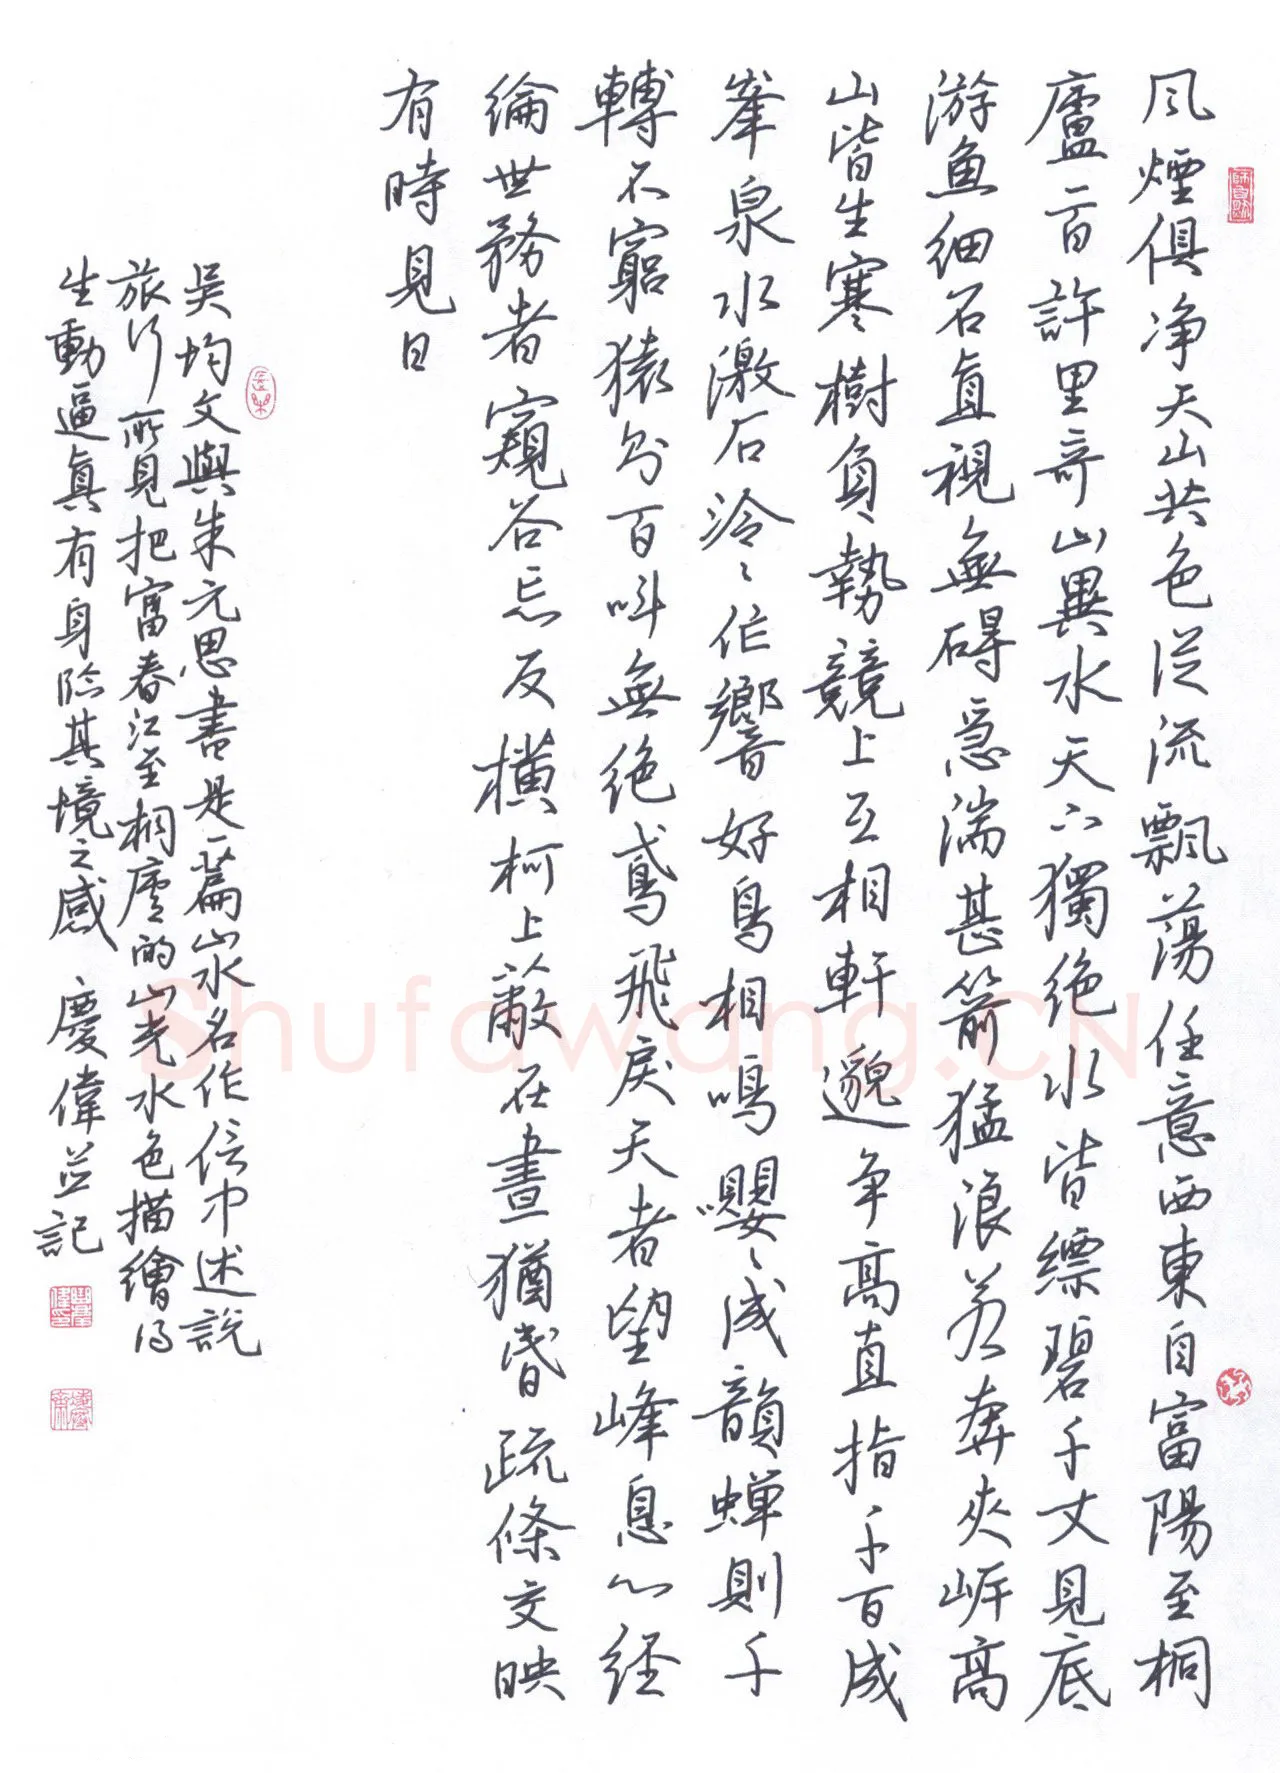 風煙俱净天山共色從流飄蕩任意西東自富陽至桐
廬一百許里奇山異水天下獨絕水皆縹碧千丈見底
游魚細石直視無碍急湍甚箭猛浪若奔夾峅高
山皆生寒樹負勢競上互相軒邈争高直指千百成
峯泉水激石泠〻作響好鳥相鳴嚶〻成韻蟬則千
轉不窮猿則百叫無絕鳶飛戾天者望峰息心經
綸世務者窺谷忘反橫柯上蔽在晝猶昏疏條交映
有時見日
吳均文與朱元思書是一篇山水名作信中述說
旅行所見把富春江至桐廬的山光水色描繪得
生動逼真有身臨其境之感 慶偉並記
Shufawang.CN